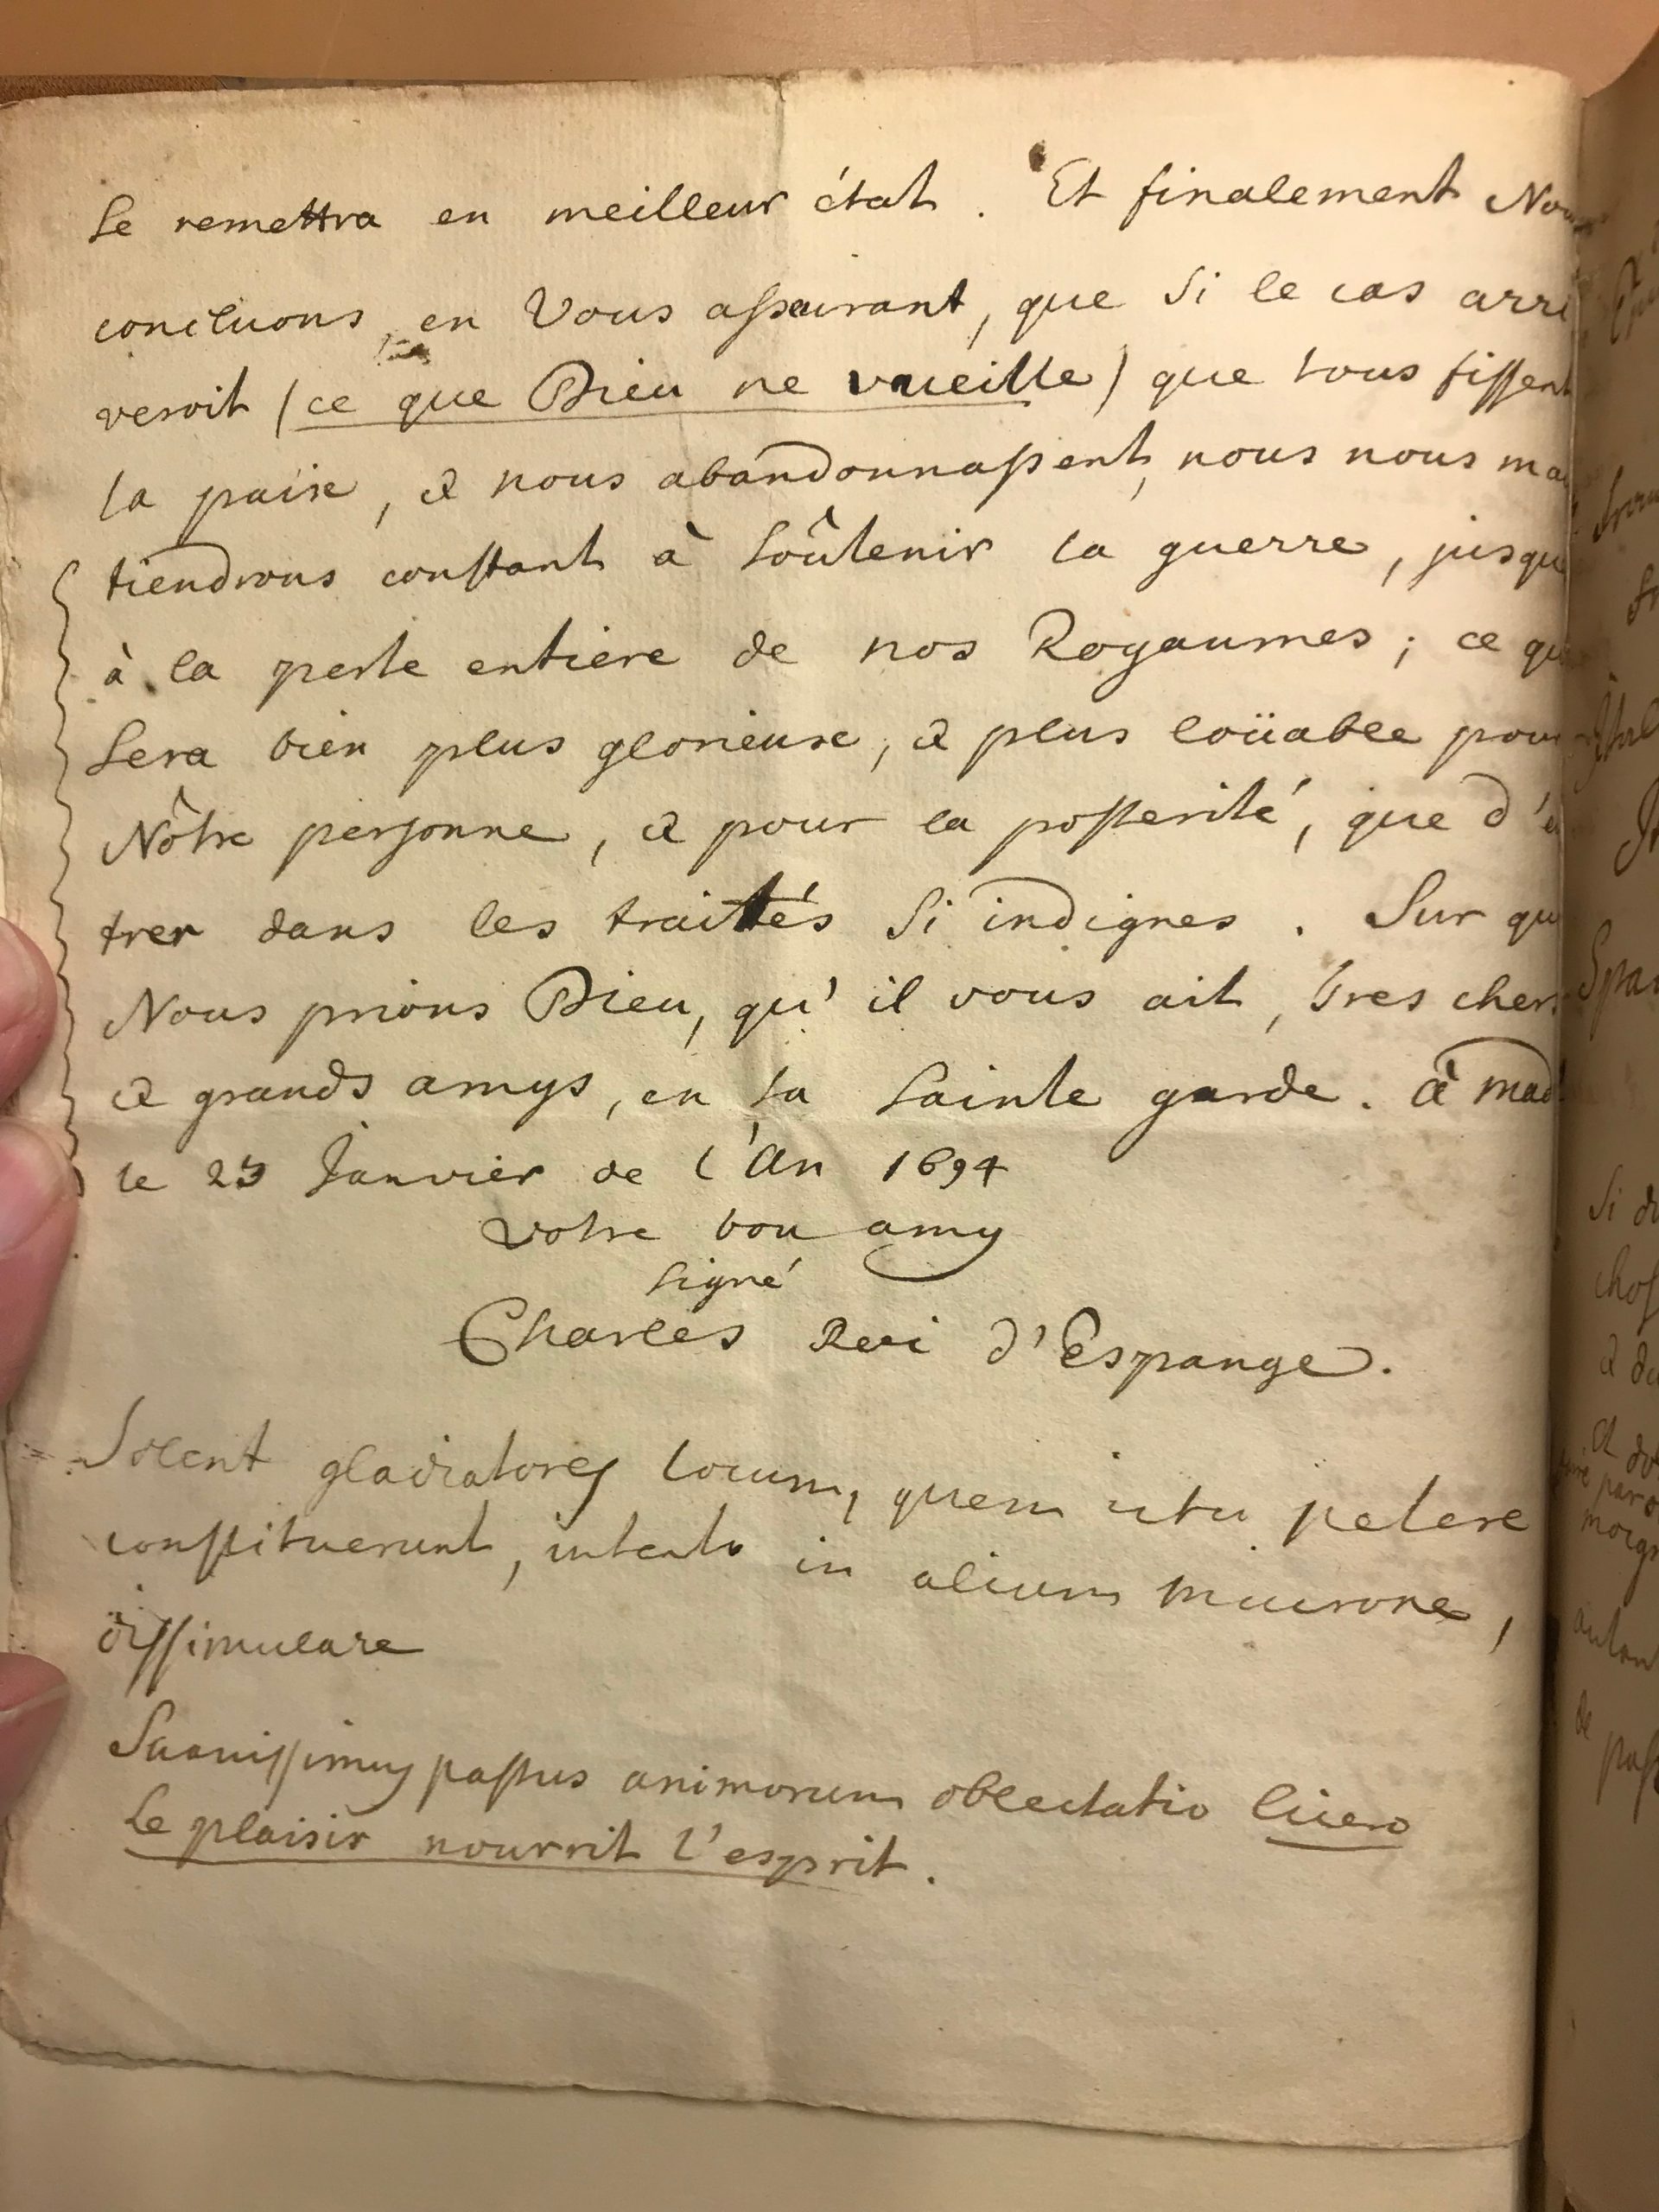 se remettra en meilleur état. Et finalement Nou
concluons, en Vous assurant, que si le cas arri
veroit (ce que Dieu ne vueille) que tous fissent
la paix, & nous abandonnassent, nous nous mai
tiendrons constant à soûtenir la guerre, jusqu
à la perte entiere de nos Royaumes; ce qu
sera bien plus glorieuse, & plus loüable pour
Nôtre personne, & pour la posterité, que d'e
trer dans les traittés si indignes. Sur qu
Nous prions Dieu, qu'il vous ait, tres chers
& grands amys, en sa sainte garde. à Mad
le 23 Janvier de l'An 1694
votre bon amy
signé
Charles Roi d'Espange.
Solent gladiatores locum, quem ictu petere
constituerunt, intento in alium mucrone,
dissimulare
Suavissimus pastus animorum oblectatio Cicero
Le plaisir nourrit l'esprit.